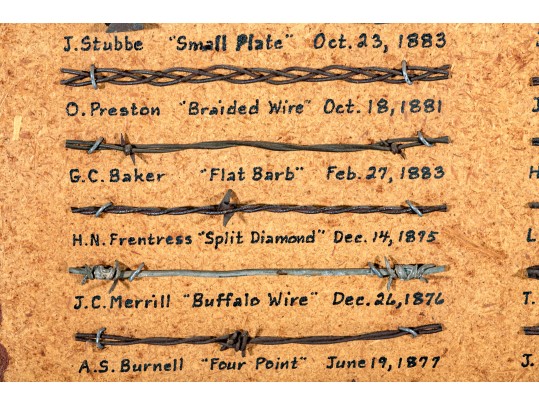 J. Stubbe "Small Plate" Oct. 23, 1883
O. Preston "Braided Wire" Oct. 18, 1881
G.C. Baker "Flat Barb" Feb. 27, 1883
H.N. Frentress "Split Diamond" Dec. 14, 1875
J.C. Merrill "Buffalo Wire" Dec. 26, 1876
A.S. Burnell "Four Point" June 19, 1877
J
J.
H
L
T.
J.